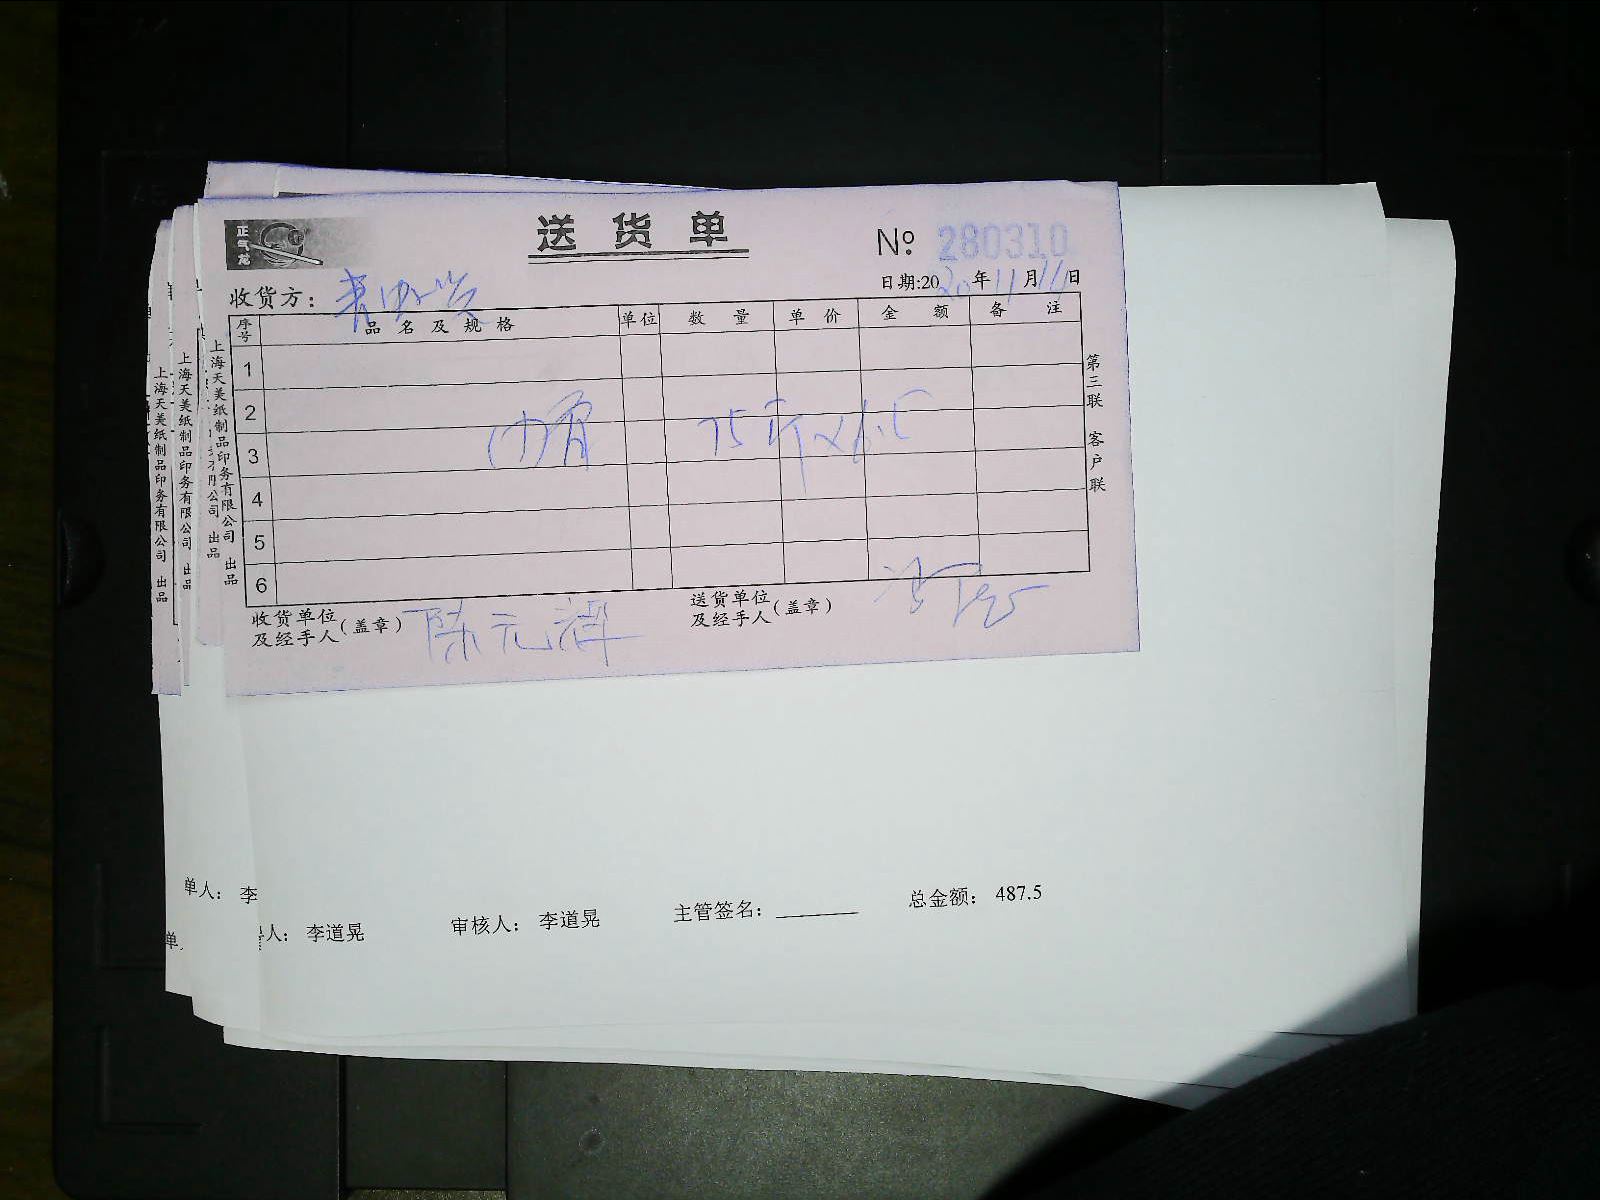 正气龙
送货单
№ 280310
收货方：
日期:2020年11月11日
序号 品名及规格 单位 数量 单价 金额 备注
1
2
75斤×6.5
3
4
5
6
收货单位及经手人(盖章) 陈元辉
送货单位及经手人(盖章)
第三联 客户联
上海天美纸制品印务有限公司 出品
上海天美纸制品印务有限公司 出品
上海天美纸制品印务有限公司 出品
单人： 李
总金额： 487.5
人： 李道晃 审核人： 李道晃 主管签名：
单